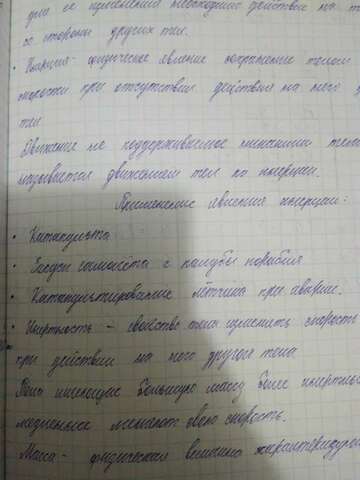 для ее изменения необходимо действие на т
со стороны других тел.
• Инерция - физическое явление сохранение телом
скорости при отсутствии действия на него д
тел
Движение не поддерживаемое никакими тела
называется движением тел по инерции.
Применение явления инерции:
• Катапульта
• Взлёт самолёта с палубы корабля
• Катапультирование лётчика при аварие.
• Инертность - свойство тела изменить скорость
при действии на него другого тела
Тела имеющие большую массу более инертны
медленнее меняют свою скорость.
Масса - физическая величина характеризую